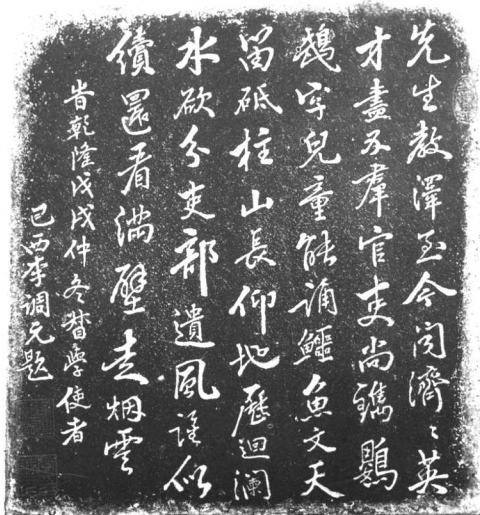 先生教澤至今聞濟〻英
才盡不羣官吏尚鐫鸚
鵡字兒童能誦鱷魚文天
留砥柱山長仰地歷迴瀾
水欲分吏部遺風誰似
續還看滿壁走烟雲
旹乾隆戊戌仲冬督學使者
巴西李調元題